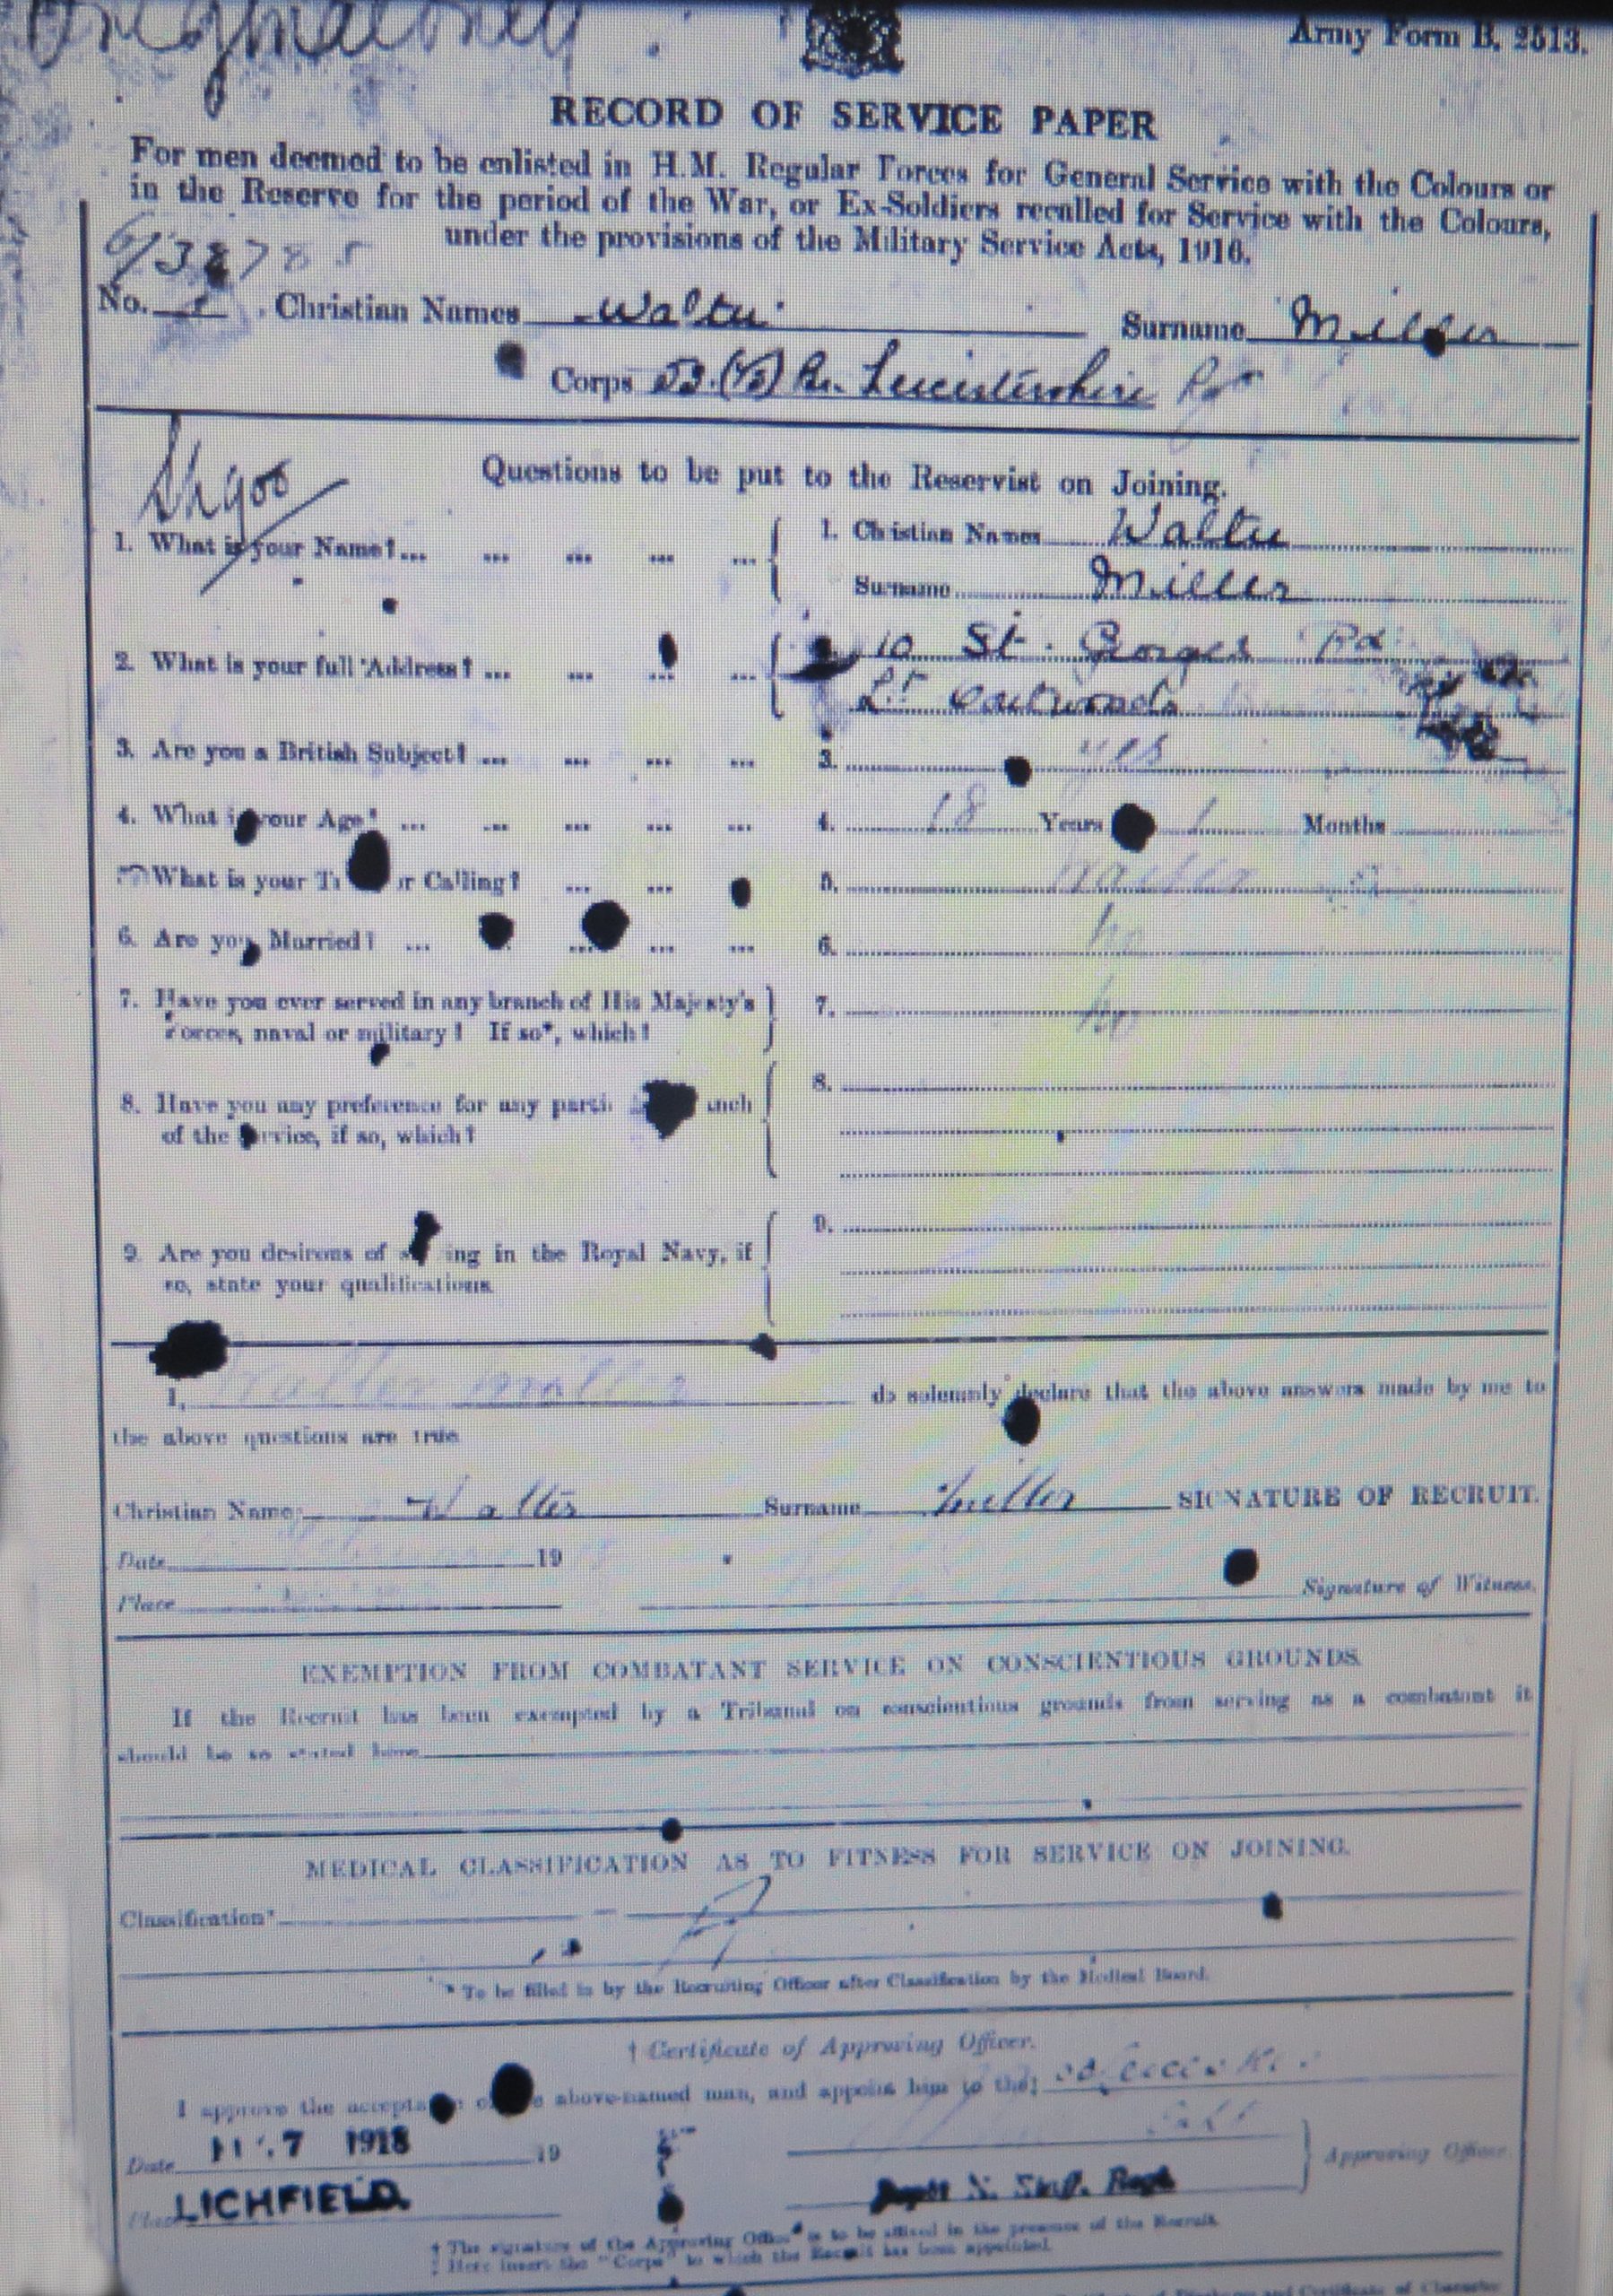 Army Form B. 2513.
RECORD OF SERVICE PAPER
For men deemed to be enlisted in H.M. Regular Forces for General Service with the Colours or
in the Reserve for the period of the War, or Ex-Soldiers recalled for Service with the Colours,
under the provisions of the Military Service Acts, 1916.
No. Christian Names Walter Surname Miller
Corps Leicestershire
Questions to be put to the Reservist on Joining.
1. What is your Name? ... ... ... ... ... 1. Christian Names Walter
Surname Miller
2. What is your full Address? ... ... ... ... 10 St. Georges Rd
3. Are you a British Subject? ... ... ... ... 3. yes
4. What is your Age? ... ... ... ... ... 4. 18 Years 1 Months
What is your or Calling? ... ... 5.
6. Are you Married? ... ... ... ... 6. no
7. Have you ever served in any branch of His Majesty's 7. no
Forces, naval or military? If so*, which?
8. Have you any preference for any 8.
of the Service, if so, which?
9. Are you desirous of ing in the Royal Navy, if 9.
so, state your qualifications.
I, Walter Miller do solemnly declare that the above answers made by me to
the above questions are true
Christian Name Walter Surname Miller SIGNATURE OF RECRUIT.
Date 19
Place Signature of Witness.
EXEMPTION FROM COMBATANT SERVICE ON CONSCIENTIOUS GROUNDS
If the Recruit has been exempted by a Tribunal on conscientious grounds from serving as a combatant it
should be so stated here
MEDICAL CLASSIFICATION AS TO FITNESS FOR SERVICE ON JOINING.
Classification*
* To be filled in by the Recruiting Officer after Classification by the Medical Board.
† Certificate of Approving Officer.
I approve the above-named man, and appoint him to the‡
Date 7 1918 19
Approving Officer.
Place LICHFIELD.
† The signature of the Approving Officer is to be affixed in the presence of the Recruit.
‡ Here insert the "Corps" to which the Recruit has been appointed.